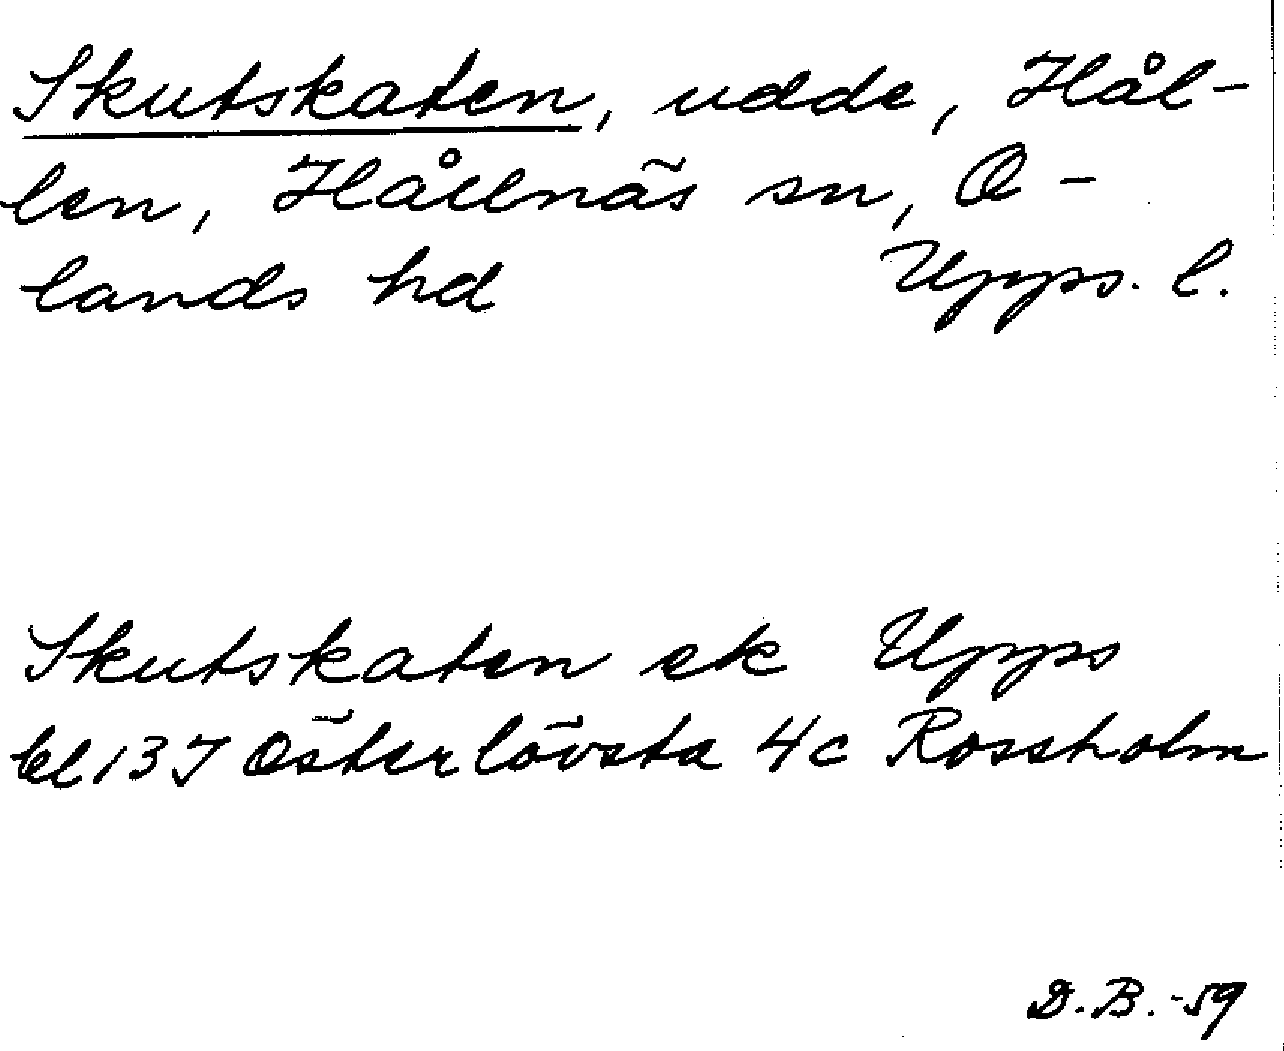 Skutskaten, udde, Hål-
len, Hållnäs sn, O-
lands hd Upps. l.
Skutskaten ek Upps
bl 137 Österlövsta 4c Rossholm
D.B.-59